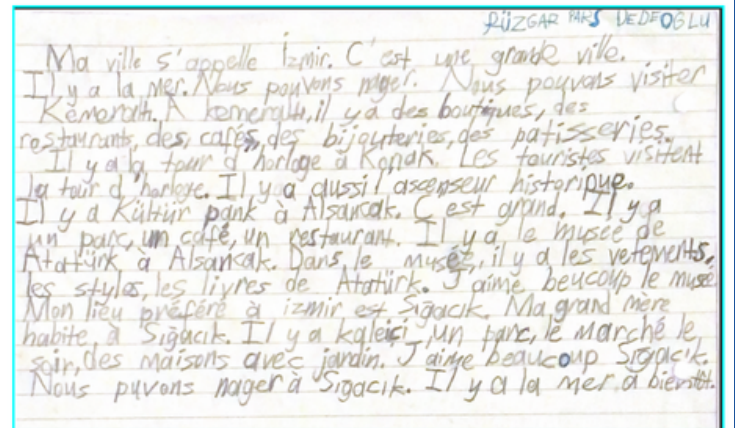 RÜZGAR PARS DEDEOĞLU
Ma ville s'appelle İzmir. C'est une grande ville.
Il y a la mer. Nous pouvons nager. Nous pouvons visiter
Kemeraltı. A kemeraltı, il y a des boutiques, des
restaurants, des, cafés, des bijouteries, des patisseries.
Il y a la tour d'horloge à Konak. Les touristes visitent
la tour d'horloge. Il y a aussi l'ascenseur historique.
Il y a Kültür park à Alsancak. C'est grand. Il y a
un parc, un café, un restaurant. Il y a le musée de
Atatürk à Alsancak. Dans le musée, il y a les vetements,
les stylos, les livres de Atatürk. J'aime beucoup le musé
Mon lieu préféré à izmir est Sığacık. Ma grand mère
habite à Sığacık. Il y a kaleiçi, un parc, le marché le
soir, des maisons avec jardin. J'aime beaucoup Sıgacık.
Nous puvons nager à Sıgacık. Il y a la mer. a bientôt.